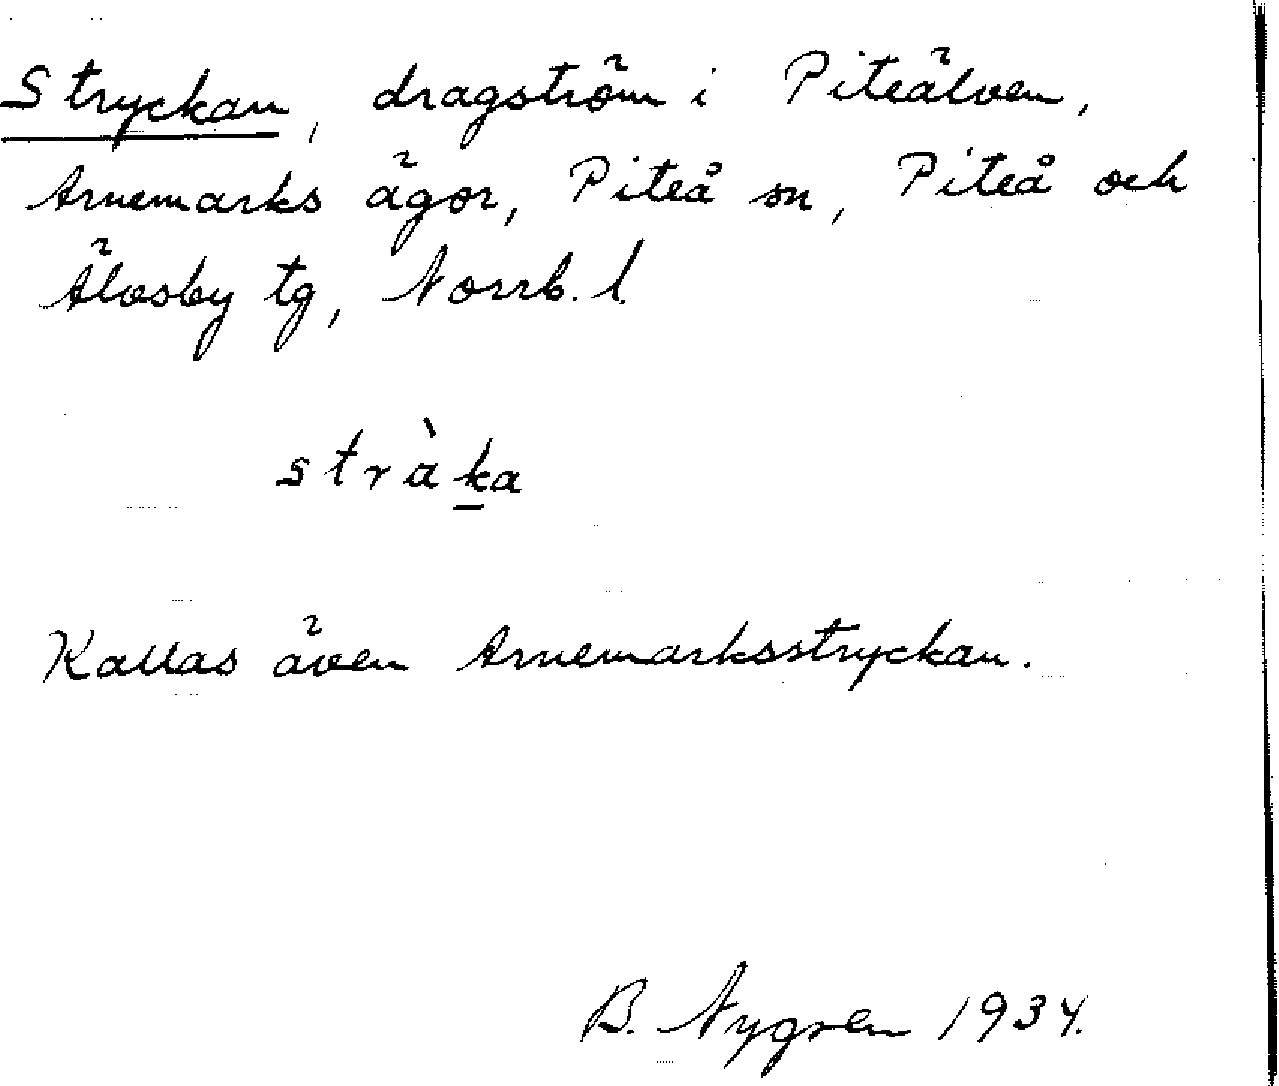 Stryckan, dragström i Piteälven,
Arnemarks ägor, Piteå sn, Piteå och
Älvsby tg, Norrb. l.
stràka
Kallas även Arnemarksstryckan.
B. Nygren 1934.